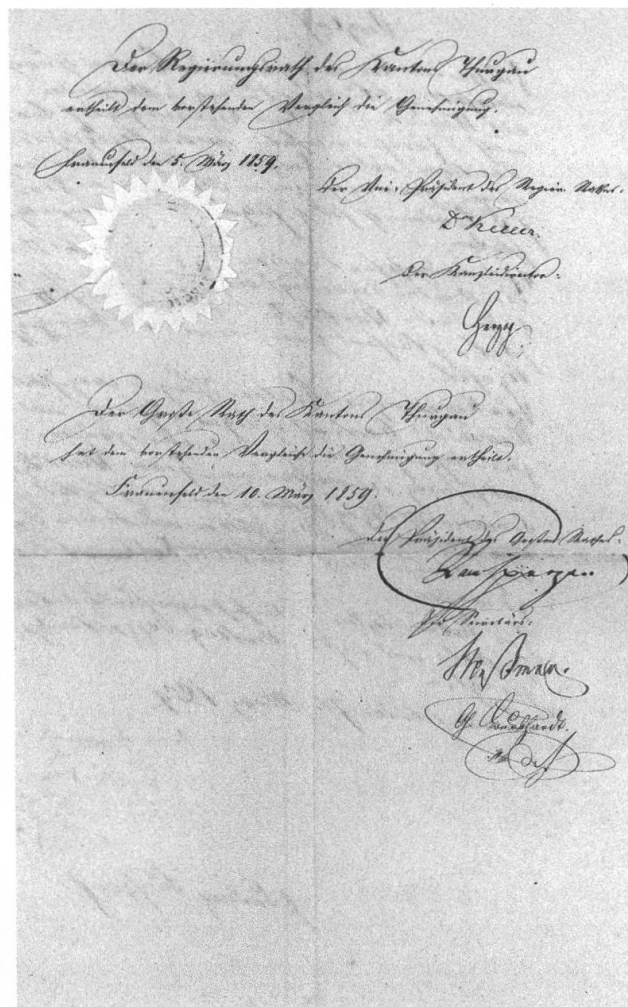 Der Regierungsrath des Kantons Thurgau
ertheilt dem vorstehenden Vergleich die Genehmigung.
Frauenfeld den 5. März 1859.
Der Präsident des Regier. Rathes.
Der Kanzleidirektor:
Der Große Rath des Kantons Thurgau
hat dem vorstehenden Vergleich die Genehmigung ertheilt.
Frauenfeld den 10. März 1859.
Der Präsident des Großen Rathes:
Die Secretärs:
Meßmer.